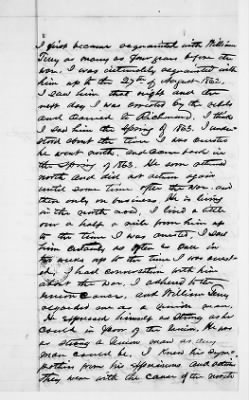 I first became acquainted with William
Terry as many as four years before the
war. I was intimately acquainted with
him up to the 27th of August 1862.
I saw him that night and the
next day I was arrested by the rebels
and carried to Richmond. I think
I saw him the Spring of 1863. I under-
stood about the time I was arrested
he went north, and came back in
the Spring of 1863. He soon
north and did not return again
until some time after the war. and
then only on business. He is living
in the north now. I lived a little
over a half a mile from him up
to the time I was arrested. I saw
him certainly as often as twice in
the week up to the time I was arrest-
ed. I had conversation with him
about the war. I adhered to the
Union Cause, and William Terry
regarded me as a Union man.
He expressed himself as strong as he
could in favor of the Union. He was
as strong a Union man as any
man could be. I knew his sym-
pathies from his expressions and action
They were with the cause of the north